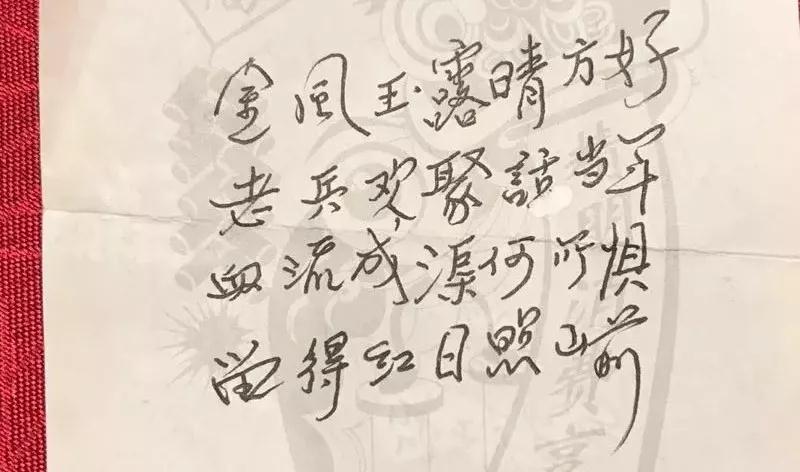 金風玉露晴方好
老兵欢聚話当年
血流成渠何所惧
留得红日照山前